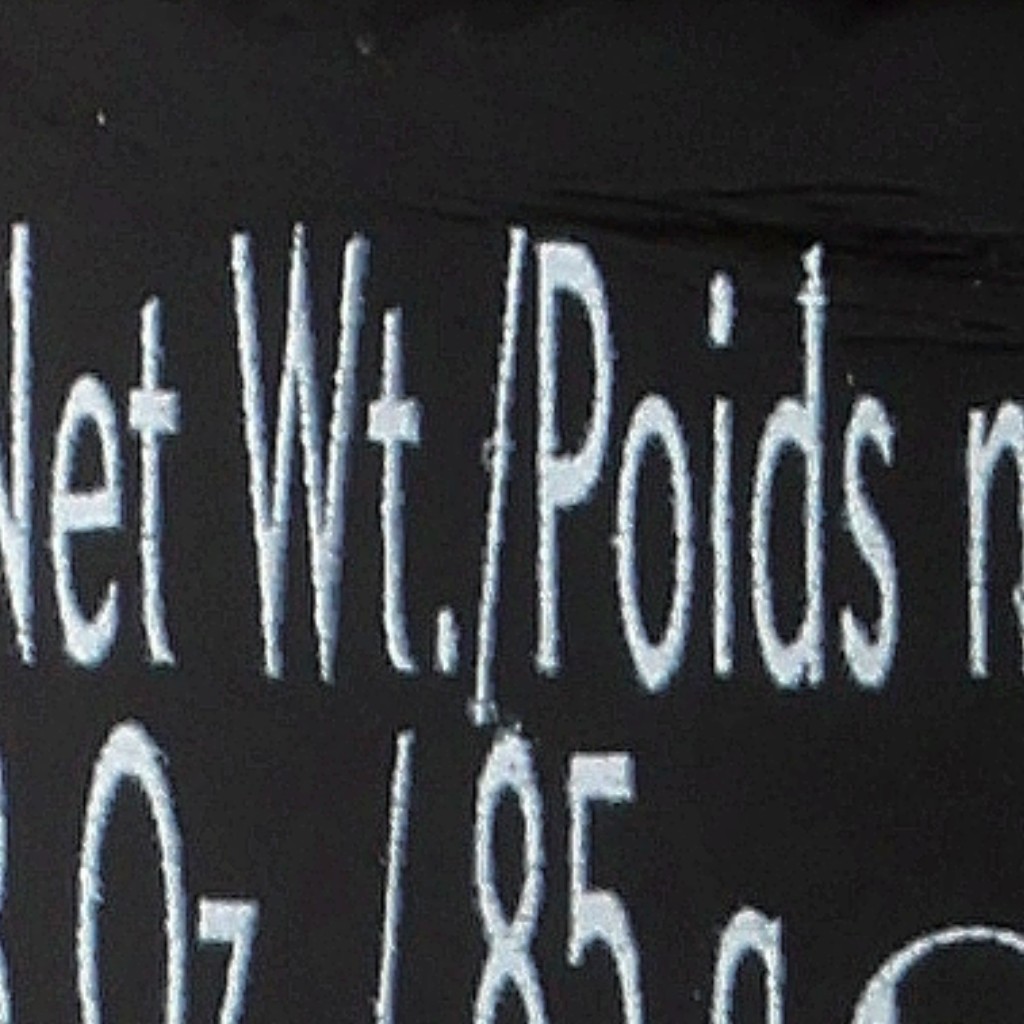 Net Wt./Poids n
3 Oz / 85 g